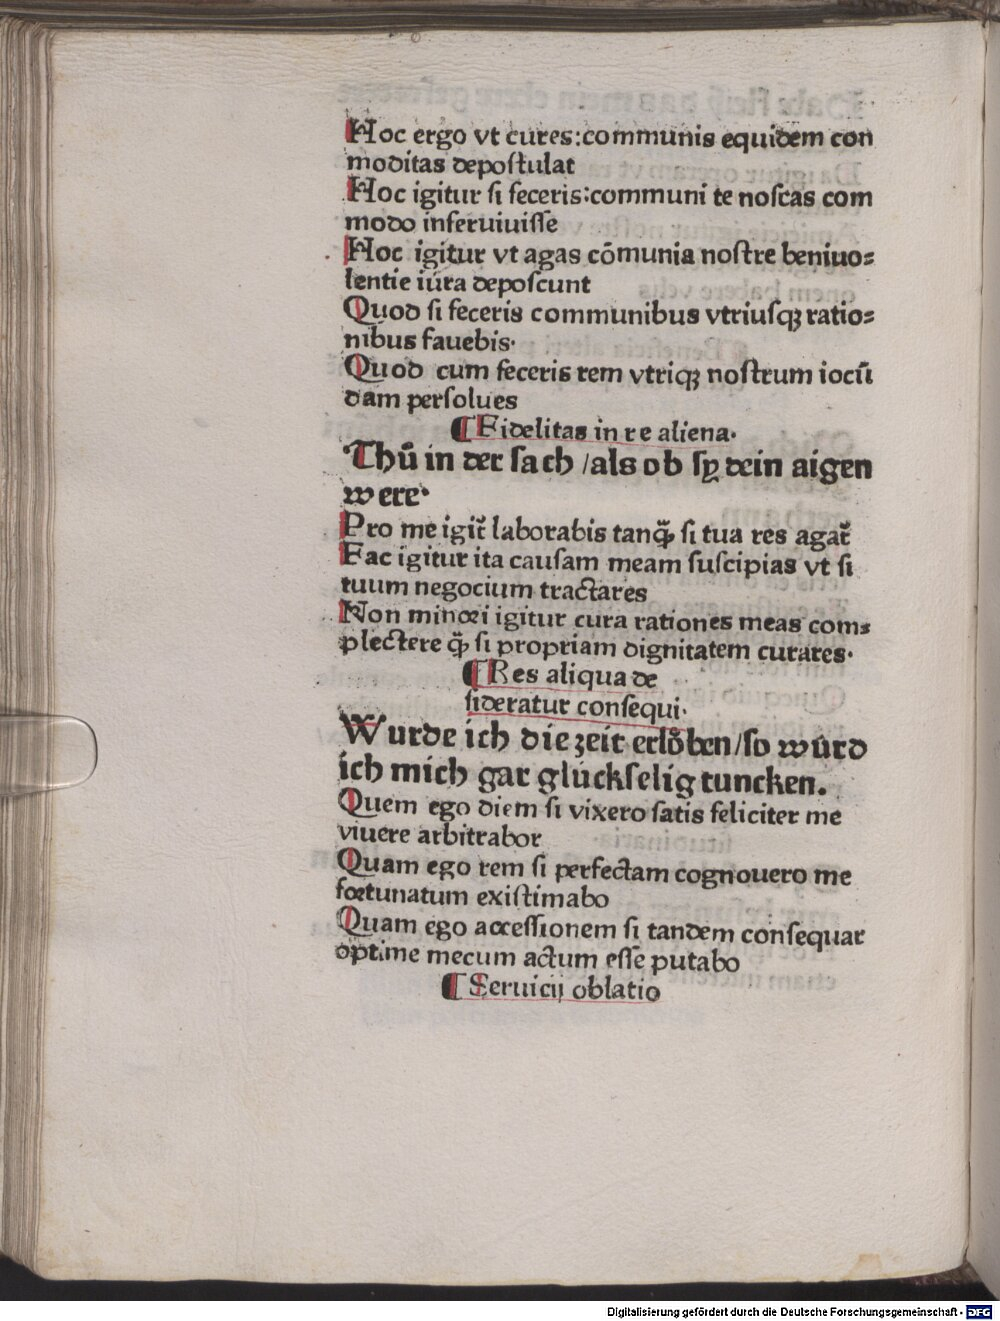 Hoc ergo vt cures:communis equidem con
moditas depostulat
Hoc igitur si feceris:communi te noscas com
modo inseruiuisse
Hoc igitur vt agas cōmunia nostre beniuo⸗
lentie iura deposcunt
Quod si feceris communibus vtriusqꝫ ratio⸗
nibus fauebis·
Quod cum feceris rem vtriqꝫ nostrum iocū
dam persolues
¶ Fidelitas in re aliena·
Thů in der sach /als ob sy dein aigen
were·
Pro me igit᷑ laborabis tanqꝫ̄ si tua res agat᷑
Fac igitur ita causam meam suscipias vt si
tuum negocium tractares
Non minori igitur cura rationes meas com⸗
plectere qꝫ̄ si propriam dignitatem curares·
¶ Res aliqua de
sideratur consequi·
Wurde ich die zeit erlőben/so wurd
ich mich gar gluckselig tuncken.
Quem ego diem si vixero satis feliciter me
viuere arbitrabor
Quam ego rem si perfectam cognouero me
fortunatum existimabo
Quam ego accessionem si tandem consequar
optime mecum actum esse putabo
¶ Seruicij oblatio
Digitalisierung gefördert durch die Deutsche Forschungsgemeinschaft - DFG